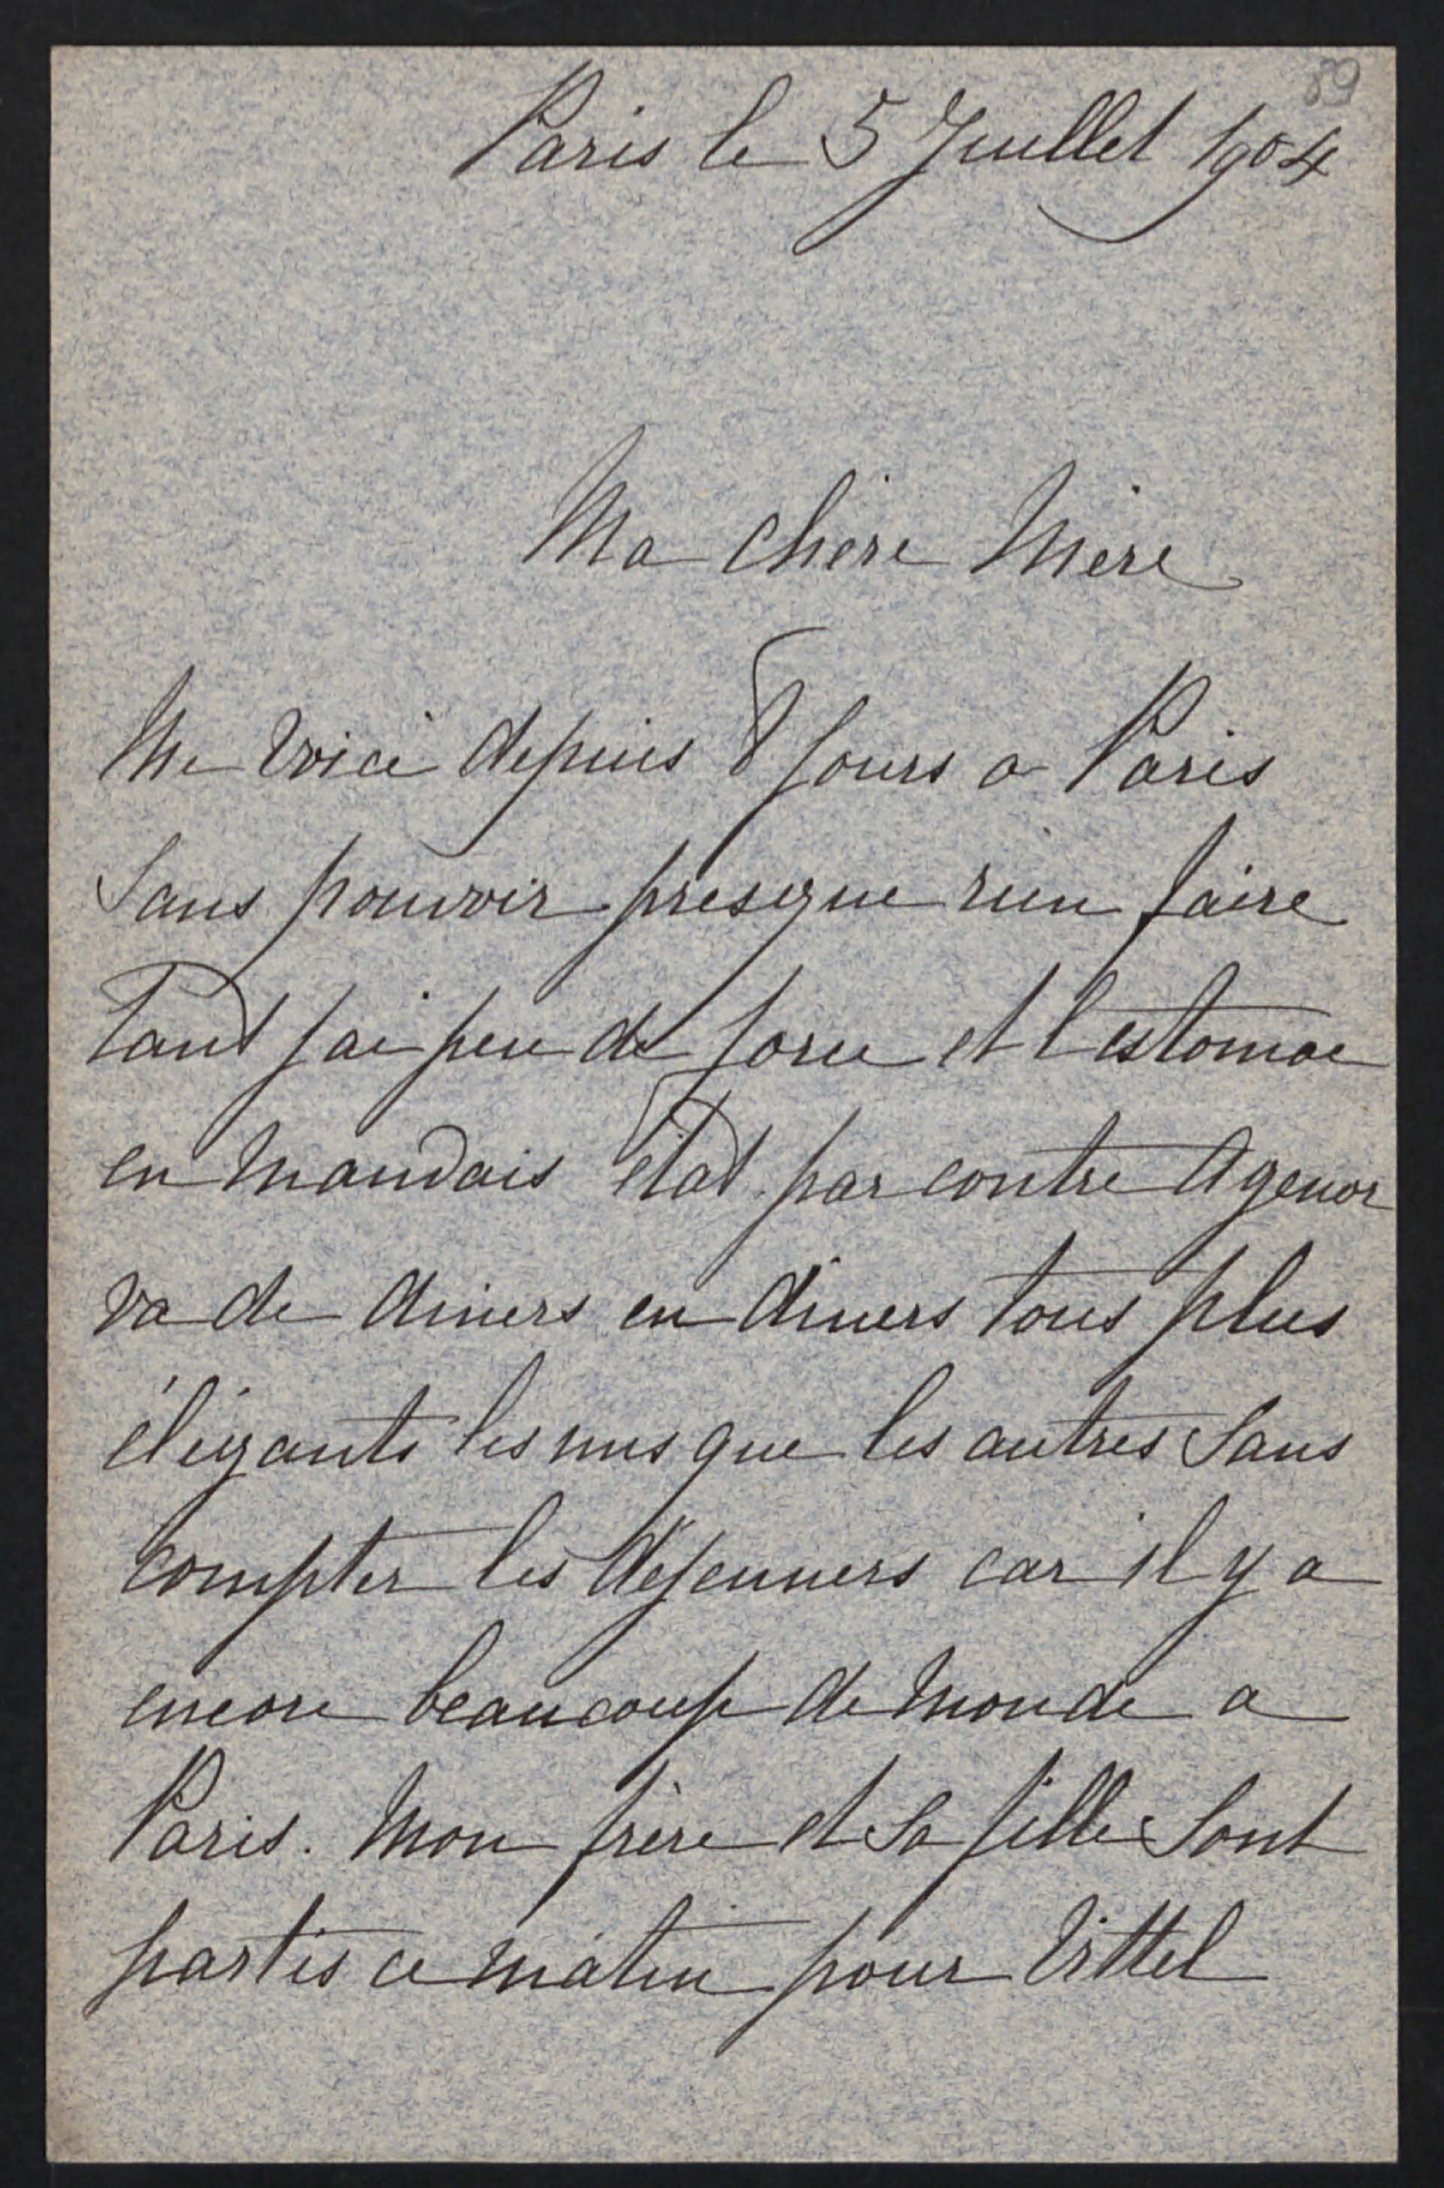 89
Paris le 5 Juillet 1904
Ma chère Mère
Me voici depuis 8 jours a Paris
sans pouvoir presque rien faire
tant j'ai peu de force et l'estomac
en mauvais état. par contre Agenor
va de diners en diners tous plus
élégants les uns que les autres sans
compter les déjeuners car il y a
encore beaucoup de monde a
Paris. Mon frère et sa fille sont
partis ce matin pour Vittel